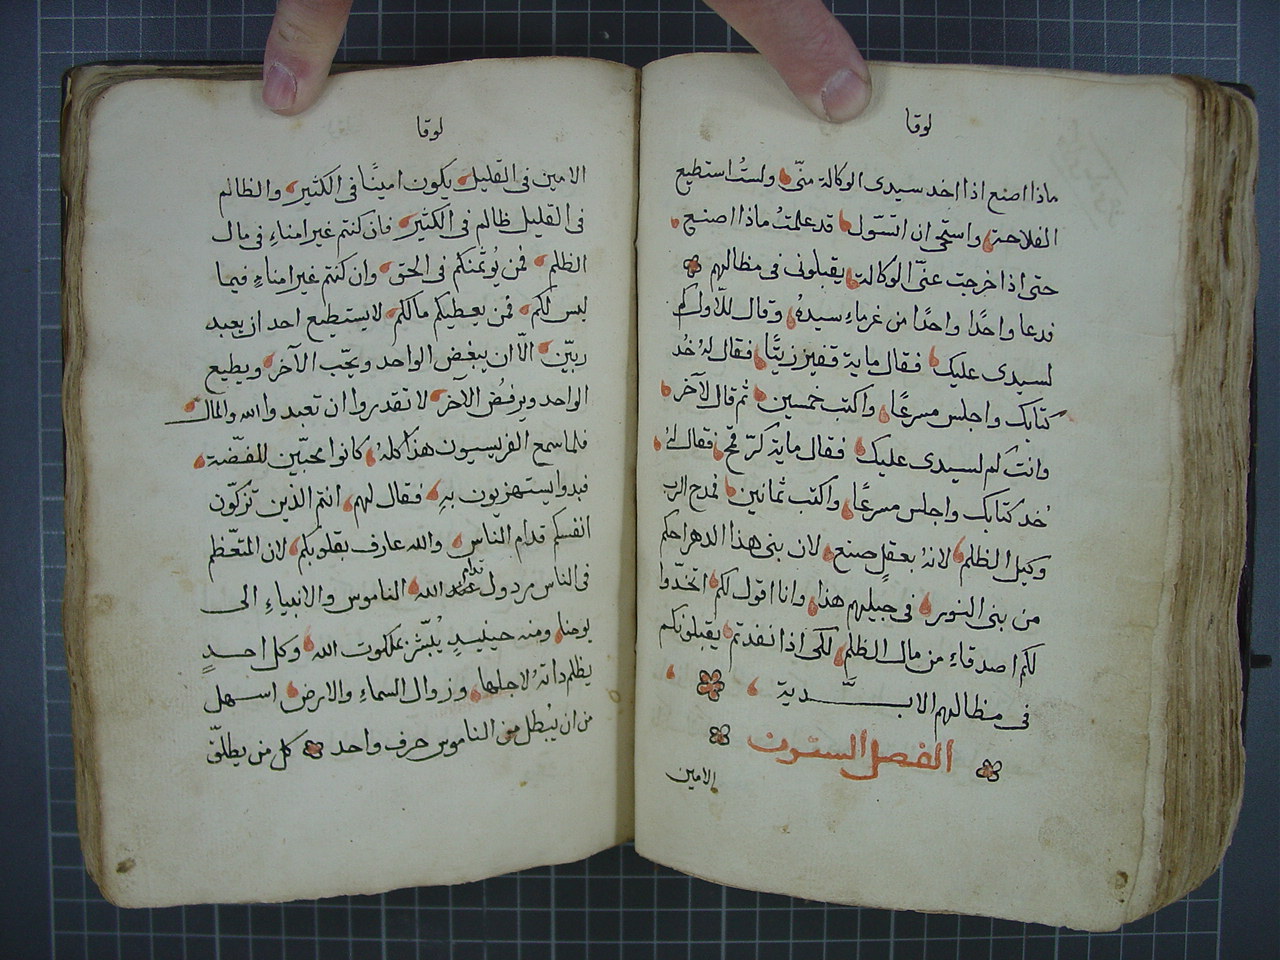 لوقا
ماذا اصنع اذا اخد سيدى الوكالة منّى ولستُ استطيع
الفلاحة واستحى ان اتسّول قدعلمتُ ماذا اصنع
حتى اذا خرجت عنّى الوكالة يقبلونى فى مظالهم
فدعا واحدًا واحدًا من غرماءِ سيدهُ وقال للأول كم
لسيدى عليك فقال ماية قفيز زيتًا فقال لهُ خُد
كتابك واجلس مسرعًا واكتب خمسين ثم قال لآخر
وانت كم لسيدى عليك فقال ماية كرّ قمح فقال لهُ
خُد كتابك واجلس مسرعًا واكتب ثمانين فمدح الرب
وكيل الظلم لانهُ بعقلٍ صنع لان بنى هذا الدهر احكم
من بنى النور فى جيلهم هذا وانا اقول لكم اتخّدوا
لكم اصدقاءَ من مال الظلم لكى اذا نفدتم يقبلونكم
فى مظالهم الابـــدية
الفصل الستون
الامين
لوقا
الامين فى القليل يكون امينًا فى الكثير والظالم
فى القليل ظالم فى الكثير فان كنتم غير امناءِ فى مال
الظلم فمن يُوتمنكم فى الحق وان كنتم غير امناءٍ فيما
ليس لكم فمن يعطيكم مالكم لا يستطيع احد ان يعبد
ربيّن الّا ان يبغض الواحد ويحّب الآخر ويطيع
الواحد ويرفُض الآخر لا تقدروا ان تعبدوا الله والمال
فلما سمع الفريسيون هذا كلهُ كانوا محبّين للفضّة
فبدوا يستهزيون بهِ فقال لهم انتم الذين تزكّون
انفسكم قدام الناس والله عارف بقلوبكم لان المتعّظم
فى الناس مردول قدام الله الناموس والانبياءِ الى
يوحنا ومنه حينيدٍ يُبّشر بملكوت الله وكل احدٍ
يظلم داتهُ لاجلها وزوال السماءِ والارض اسهل
من ان يُبطل من الناموس حرف واحد كل من يطلّق